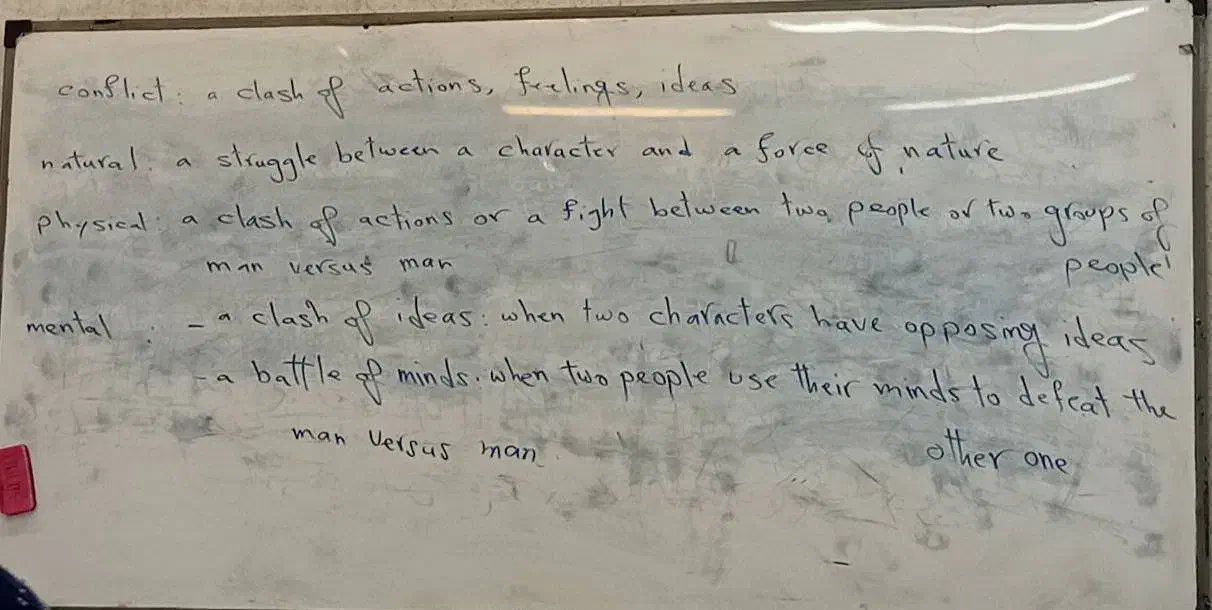 conflict: a clash of actions, feelings, ideas
natural: a struggle between a character and a force of nature
physical: a clash of actions or a fight between two people or two groups of
people
man versus man
mental : - a clash of ideas: when two characters have opposing ideas
- a battle of minds. when two people use their minds to defeat the
other one
man versus man